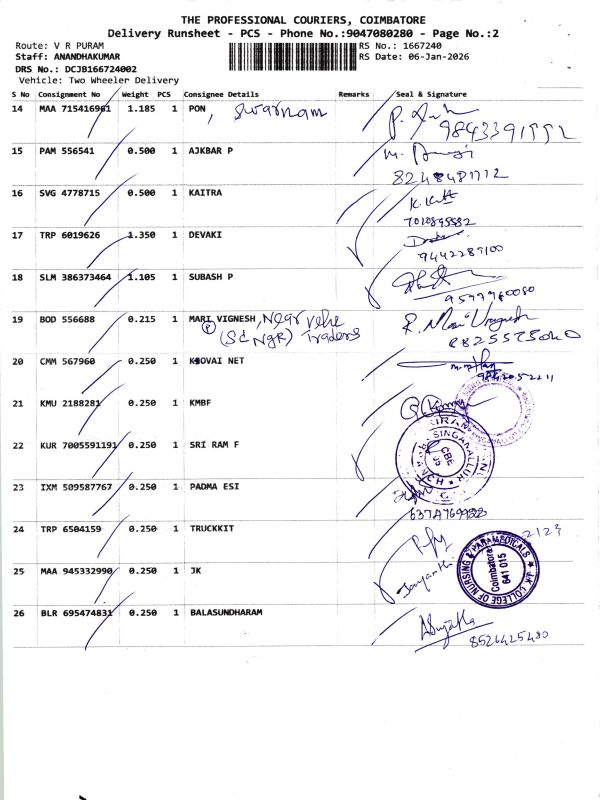 THE PROFESSIONAL COURIERS, COIMBATORE
Delivery Runsheet - PCS - Phone No.:9047080280 - Page No.:2
Route: V R PURAM
RS No.: 1667240
Staff: ANANDHAKUMAR
RS Date: 06-Jan-2026
DRS No.: DCJB166724002
Vehicle: Two Wheeler Delivery
S No Consignment No Weight PCS Consignee Details Remarks Seal & Signature
14 MAA 715416961 1.185 1 PON, Swarnam
9843391552
15 PAM 556541 0.500 1 AJKBAR P
8248481712
16 SVG 4778715 0.500 1 KAITRA
7010895582
17 TRP 6019626 1.350 1 DEVAKI
9442289100
18 SLM 386373464 1.105 1 SUBASH P
9597960080
19 BOD 556688 0.215 1 MARI VIGNESH, Near
(Sc Ngr) Traders
20 CMM 567960 0.250 1 KOVAI NET
21 KMU 2188281 0.250 1 KMBF
22 KUR 7005591191 0.250 1 SRI RAM F
SINGANALLUR
CBE
23 IXM 509587767 0.250 1 PADMA ESI
24 TRP 6504159 0.250 1 TRUCKKIT
2123
25 MAA 945332990 0.250 1 JK
J.K COLLEGE OF NURSING & PARAMEDICALS
Coimbatore
641 015
26 BLR 695474831 0.250 1 BALASUNDHARAM
8526425480